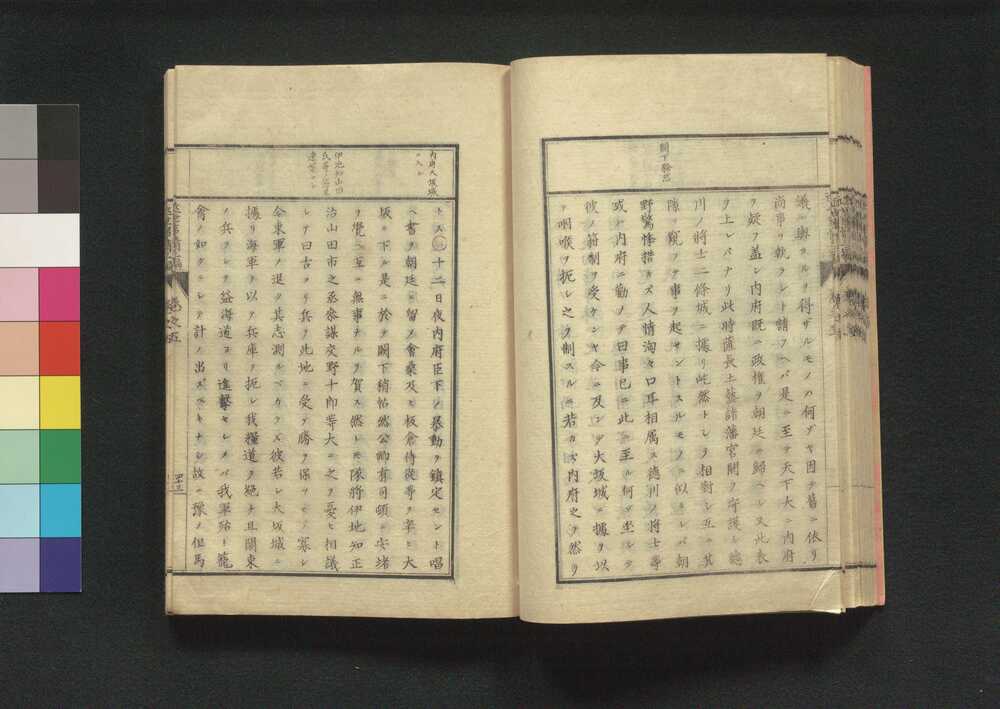 闕下騷然
議ニ與ラルヲ得ザルモノハ何ゾヤ因テ舊ニ依リ
尚事ヲ執ラント請フヘバ是ニ至テ天下大ニ内府
ヲ疑フ蓋シ内府既ニ政權ヲ朝廷ニ歸ヘシ又此表
ヲ上レバナリ此時薩長土藝諸藩宮闕ヲ守護シ德
川ノ將士二條城ニ據リ屹然トシテ相對シ互ニ其
隙ヲ窺フテ事ヲ起サントスルモノニ似タレバ朝
野驚悸措カズ人情洶々口耳相属ス德川ノ將士等
或ハ内府ニ勸メテ曰事已ニ此ニ至ル何ゾ坐シテ
彼ノ箝制ヲ受ケンヤ今ニ及ンデ大坂城ニ據リ以
テ咽喉ヲ扼シ之ヲ制スルニ若カズ内府之ヲ然リ
内府大坂城
ニ入ル
伊地知山田
氏等ノ
トス十二日夜内府臣下ノ暴動ヲ鎮定セント唱
ヘ書ヲ朝廷ニ留メ會桑及ヒ板倉侍從等ヲ率ヒ大
坂ニ下ル是ニ於テ闕下稍帖然公卿有司頗ニ安堵
ヲ覺ヘ互ニ無事ナルヲ賀ス然レモ隊將伊地知正
治山田市之丞參謀交野十郎等大ニ之ヲ憂ヒ相議
シテ曰古ヨリ兵ヲ此地ニ受テ勝ヲ保ツモノ寡シ
今東軍ノ退ク其志測ルベカラズ彼若シ大坂城ニ
據リ海軍ヲ以テ兵庫ヲ扼シ我糧道ヲ絶チ且關東
ノ兵ヲシテ益海道ヨリ進撃セシメバ我軍殆ト籠
禽ノ如クニシテ計ノ出スベキナシ故ニ豫メ但馬
卷之五
四十三